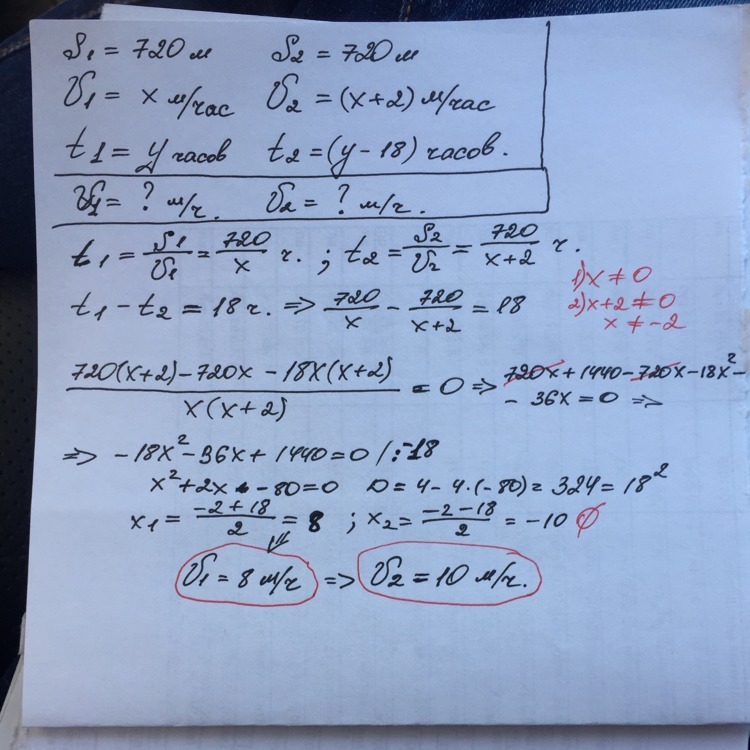 S1 = 720 м S2 = 720 м
V1 = x м/час V2 = (x+2) м/час
t1 = y часов t2 = (y - 18) часов.
V1 = ? м/ч. V2 = ? м/ч.
t1 = S1/V1 = 720/x ч. ; t2 = S2/V2 = 720/(x+2) ч.
1) x ≠ 0
2) x+2 ≠ 0
x ≠ -2
t1 - t2 = 18 ч. => 720/x - 720/(x+2) = 18
(720(x+2) - 720x - 18x(x+2))/(x(x+2)) = 0 => 720x + 1440 - 720x - 18x² -
- 36x = 0 =>
=> -18x² - 36x + 1440 = 0 /:-18
x² + 2x - 80 = 0 D = 4 - 4·(-80) = 324 = 18²
x1 = (-2+18)/2 = 8 ; x2 = (-2-18)/2 = -10 ∅
V1 = 8 м/ч => V2 = 10 м/ч.